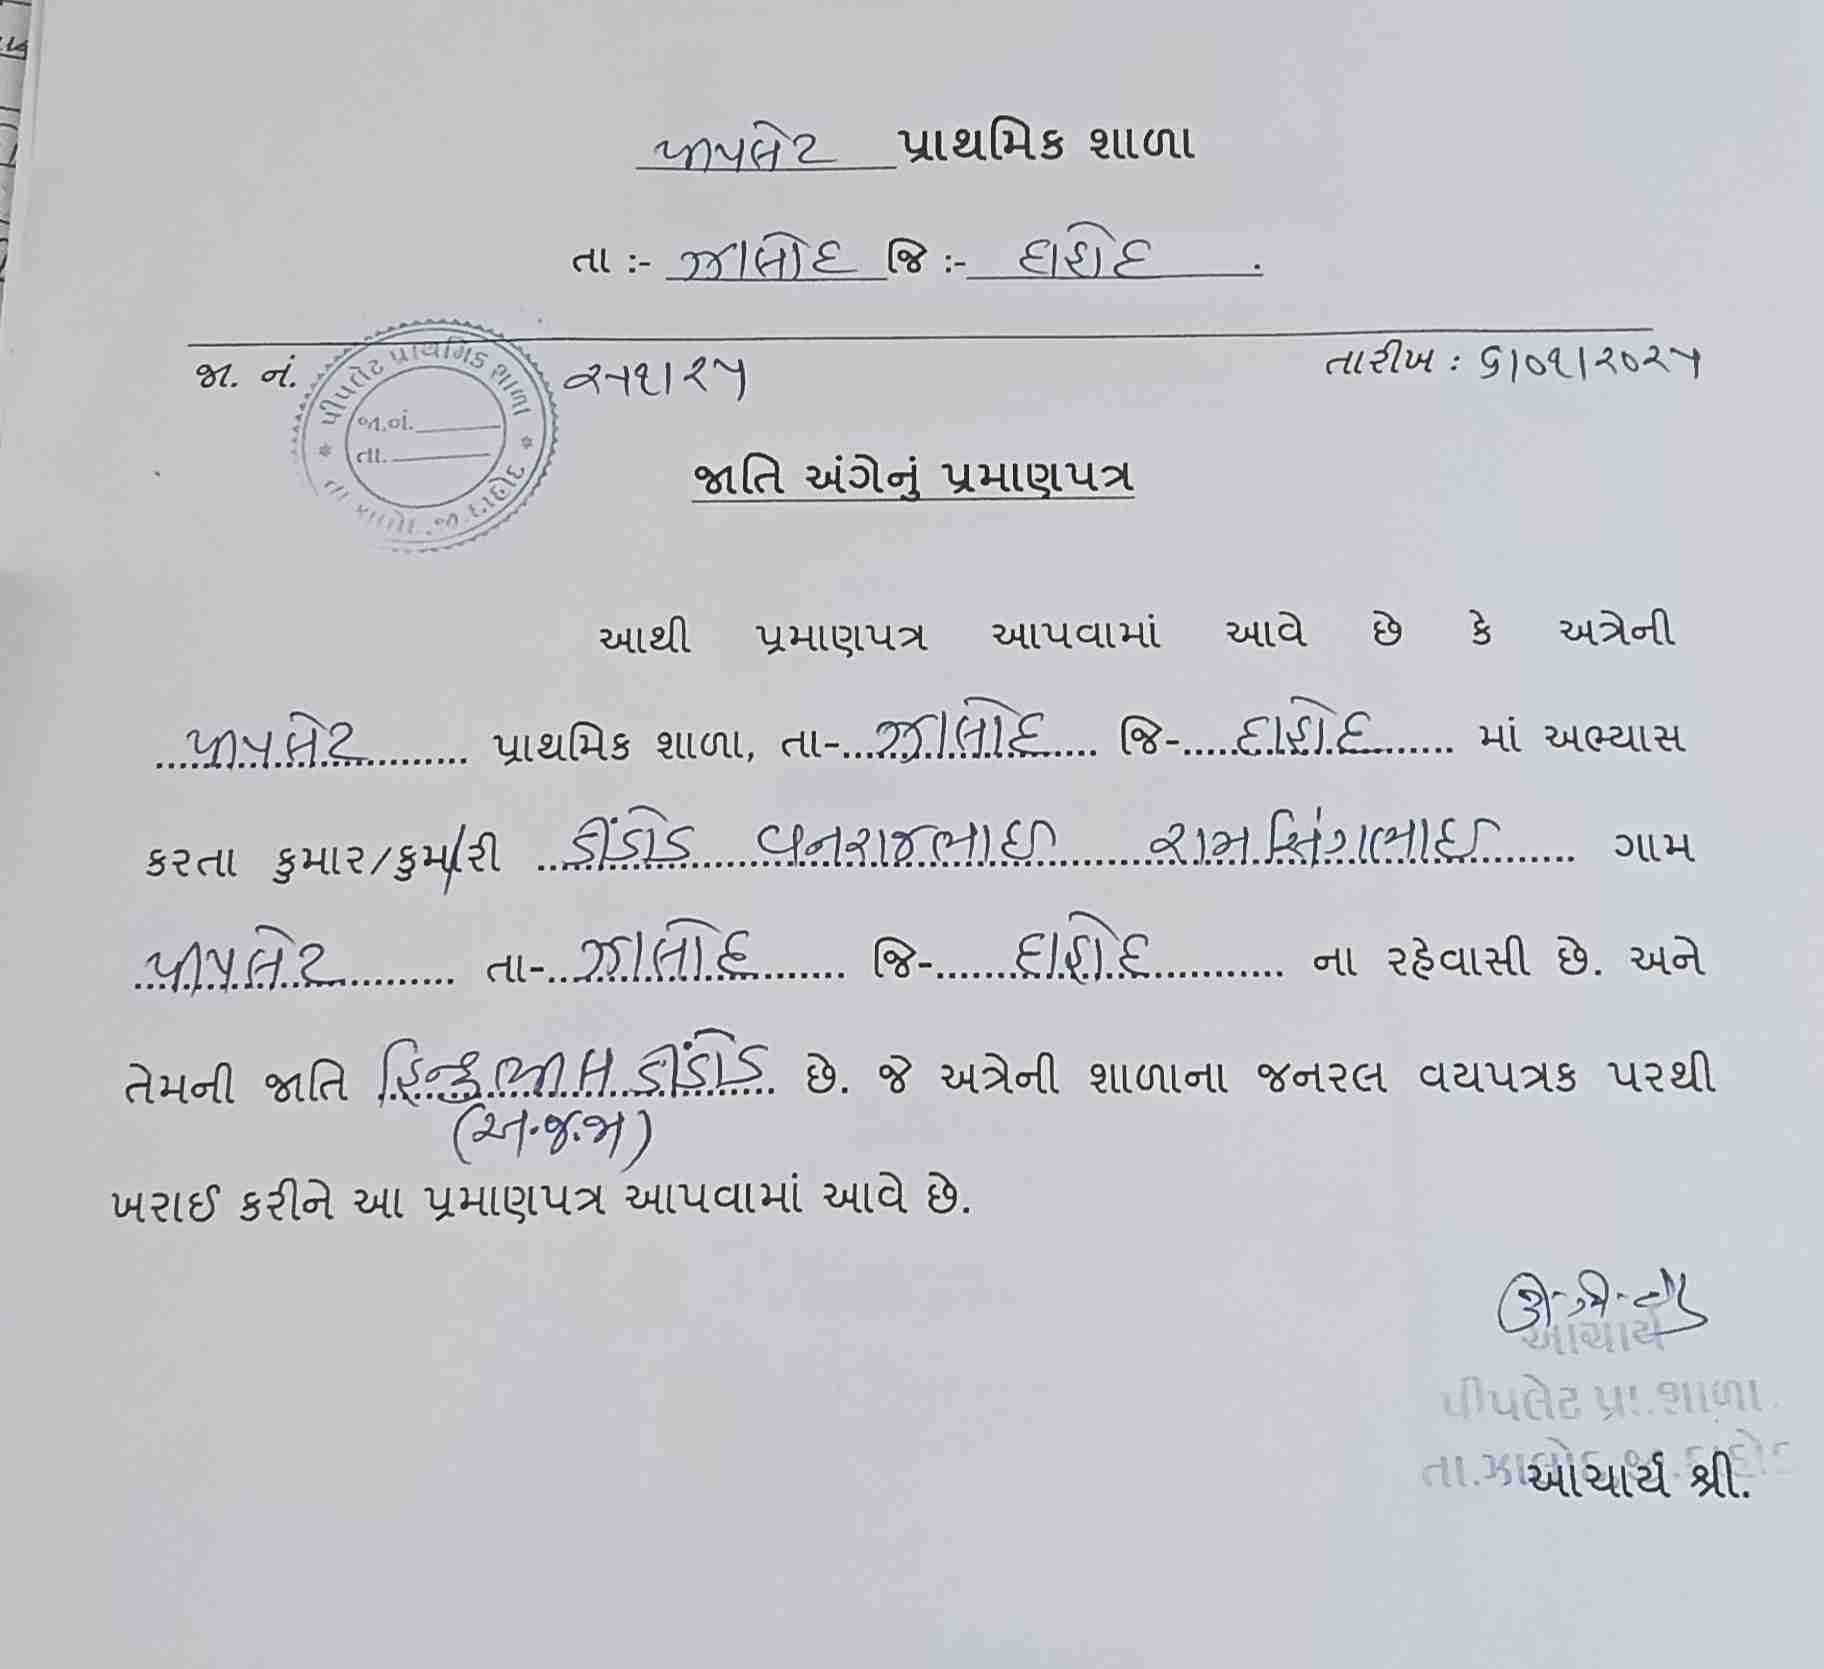 પીપલેટ પ્રાથમિક શાળા
તા :- ઝાલોદ જિ :- દાહોદ .
જા. નં. અ૧/૨૫ તારીખ : ૬/૦૧/૨૦૨૫
પીપલેટ પ્રાથમિક શાળા
જા.નં.
તા.
જાતિ અંગેનું પ્રમાણપત્ર
આથી પ્રમાણપત્ર આપવામાં આવે છે કે અત્રેની
પીપલેટ પ્રાથમિક શાળા, તા- ઝાલોદ જિ- દાહોદ માં અભ્યાસ
કરતા કુમાર/કુમારી ડીંડોડ વનરાજભાઈ રામસિંગભાઈ ગામ
પીપલેટ તા- ઝાલોદ જિ- દાહોદ ના રહેવાસી છે. અને
તેમની જાતિ હિન્દુ ભીલ ડીંડોડ છે. જે અત્રેની શાળાના જનરલ વયપત્રક પરથી
(અ.જ.જા)
ખરાઈ કરીને આ પ્રમાણપત્ર આપવામાં આવે છે.
આચાર્ય
પીપલેટ પ્રા.શાળા
આચાર્ય શ્રી.